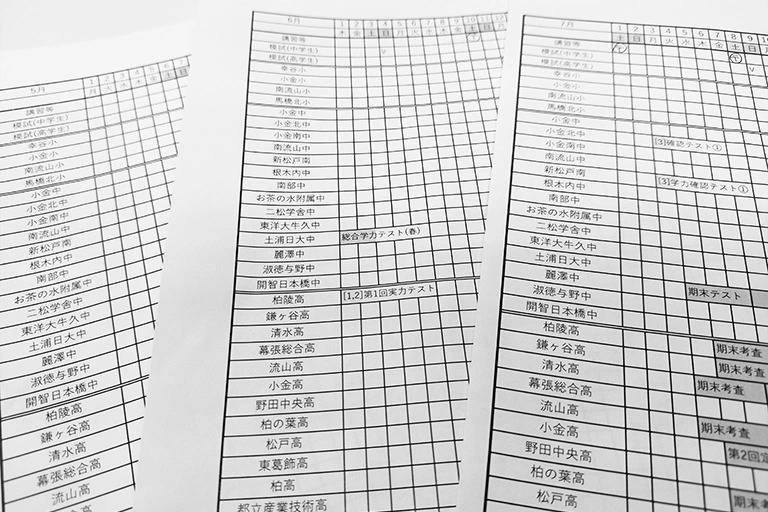 5月 1 2 3 4 5 6 7
月 火 水 木 金 土 日
講習等
模試(中学生)
模試(高学生)
幸谷小
小金小
南流山小
馬橋北小
小金中
小金北中
小金南中
南流山中
新松戸南
根木内中
南部中
お茶の水附属中
二松学舎中
東洋大牛久中
土浦日大中
麗澤中
淑徳与野中
開智日本橋中
柏陵高
鎌ヶ谷高
清水高
幕張総合高
流山高
6月 1 2 3 4 5 6 7 8 9 10 11 12
木 金 土 日 月 火 水 木 金 土 日 月
講習等
模試(中学生) V
模試(高学生)
幸谷小
小金小
南流山小
馬橋北小
小金中
小金北中
小金南中
南流山中
新松戸南
根木内中
南部中
お茶の水附属中
二松学舎中
東洋大牛久中
土浦日大中 総合学力テスト(春)
麗澤中
淑徳与野中
開智日本橋中
柏陵高 [1,2]第1回実力テスト
鎌ヶ谷高
清水高
幕張総合高
流山高
小金高
野田中央高
柏の葉高
松戸高
東葛飾高
柏高
都立産業技術高
7月 1 2 3 4 5 6 7 8 9
土 日 月 火 水 木 金 土 日
講習等
模試(中学生)
模試(高学生) V
幸谷小
小金小
南流山小
馬橋北小
小金中
小金北中
小金南中 [3]確認テスト①
南流山中
新松戸南
根木内中 [3]学力確認テスト①
南部中
お茶の水附属中
二松学舎中
東洋大牛久中
土浦日大中
麗澤中
淑徳与野中 期末テスト
開智日本橋中
柏陵高
鎌ヶ谷高 期末考査
清水高 期末考査
幕張総合高 期末考査
流山高
小金高 期末考査
野田中央高 第2回定
柏の葉高
松戸高 期末考